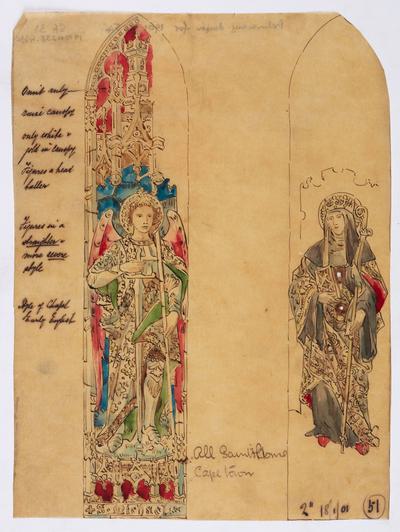 Omit ruby
raise canopy
only white &
gold in canopy
Figures a head
taller
Figures in a
draughter &
more severe
style
Style of Chapel
Early English
All Saints Home
Cape Town
2" 18/1/01
51